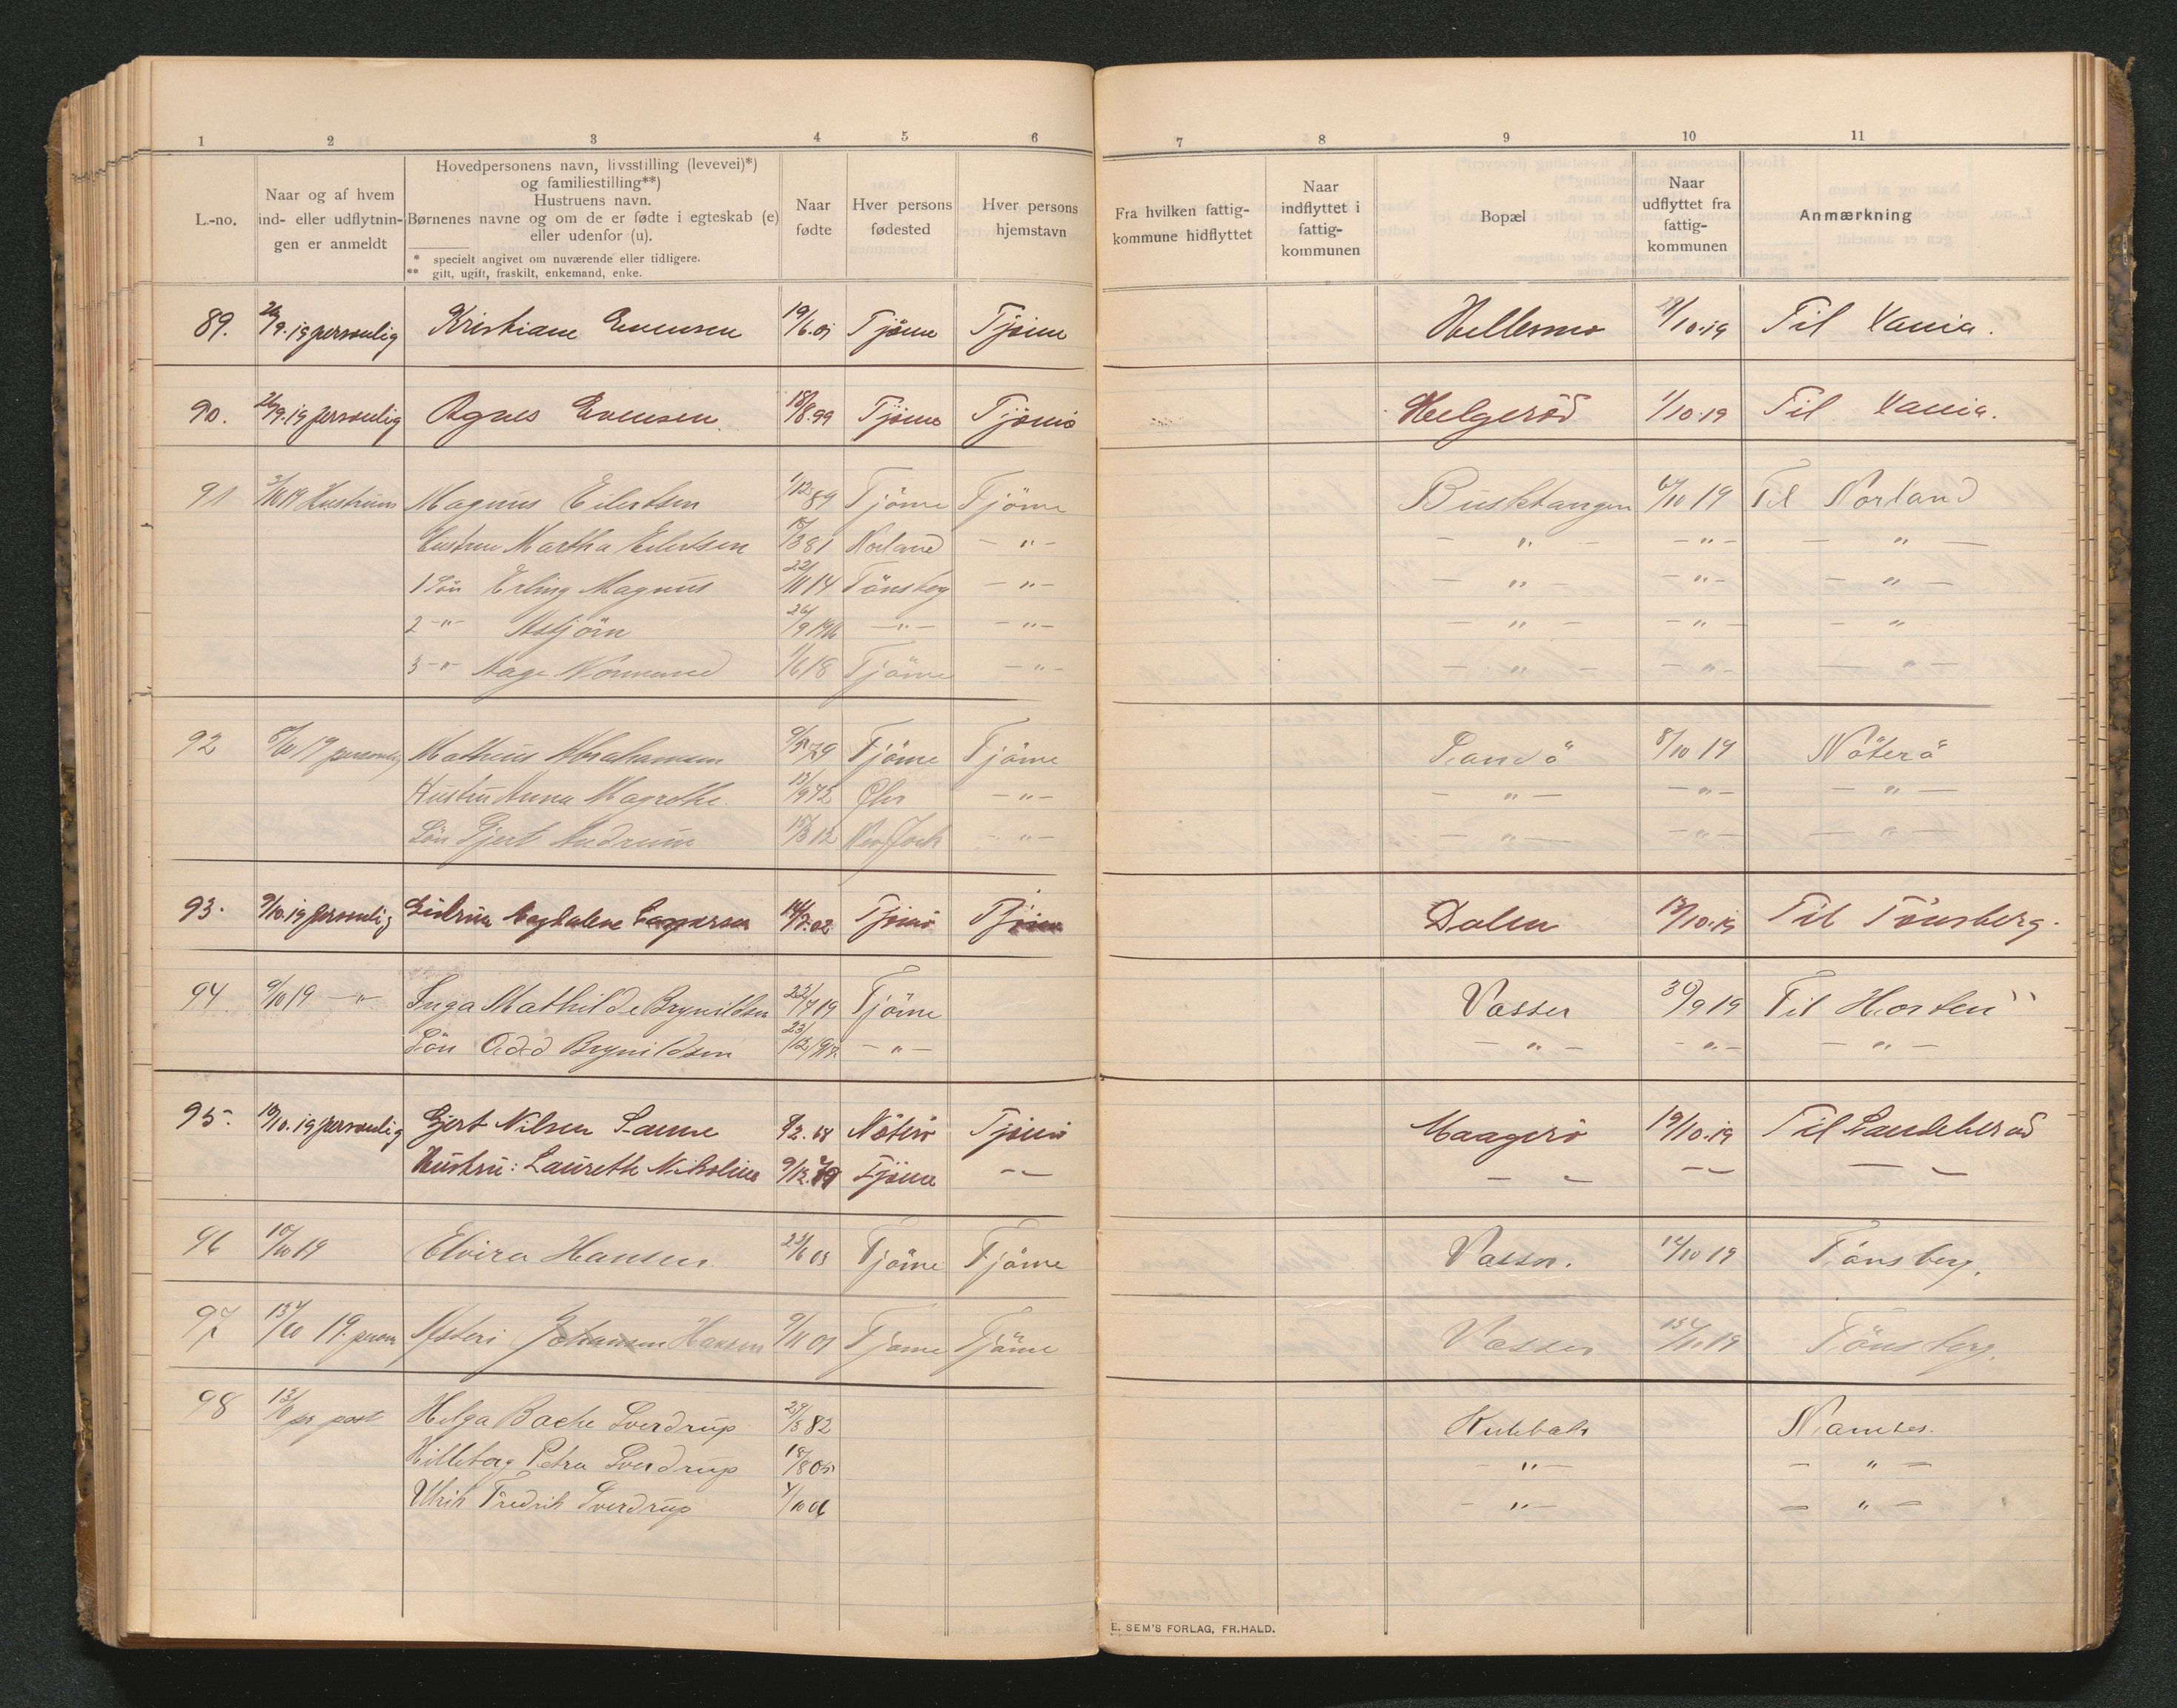 1 2 3 4 5 6 7 8 9 10 11
L.-no.
Naar og af hvem
ind- eller udflytnin-
gen er anmeldt
Hovedpersonens navn, livsstilling (levevei)*)
og familiestilling**)
Hustruens navn.
Børnenes navne og om de er fødte i egteskab (e)
eller udenfor (u).
* specielt angivet om nuværende eller tidligere.
** gift, ugift, fraskilt, enkemand, enke.
Naar
fødte
Hver persons
fødested
Hver persons
hjemstavn
Fra hvilken fattig-
kommune hidflyttet
Naar
indflyttet i
fattig-
kommunen
Bopæl
Naar
udflyttet fra
fattig-
kommunen
Anmærkning
89. 26/9.19 personlig Kristiane Evensen 19/6.01 Tjöme Tjöme Hellesmo /10.19 Til Vania.
90. 26/9.19 personlig Agnes Evensen 18/8.99 Tjöme Tjömö Helgeröd 1/10.19 Til Vania.
91 3/10 19 Hustruen Magnus Eilertsen 1/12 89 Tjöme Tjöme Busktangen 6/10 19 Til Norland
Hustru Martha Eilertsen 15/3 81 Norland — " — — " — — " — — " —
1 Sön Erling Magnus 22/11 14 Tönsberg — " — — " — — " — — " —
2 - " - Asbjörn 26/9 1916 — " — — " — — " — — " — — "
3 - " - Aage Normund 1/6 18 Tjöme — " — — " — — " — — " —
92 8/10 19 personlig Mathius Abrahamsen 9/5 79 Tjöme Tjöme Sandö 8/10 19 Nöterö
Hustru Anna Magrethe 13/9 72 — " — — " — — " — — " —
Sön Gjert Andreus 15/3 12 New York — " — — " — — " — — " —
93. 9/10.19 personlig Magdalene 14/7.02 Tjömö Tjöme Dalen 13/10.19 Til Tönsberg.
94 9/10 19 — " — Inga Mathilde Brynildsen 22/7 19 Tjöme Vasser 30/9 19 Til Horten
Sön Odd Brynildsen 23/12 1917 — " — — " — — " — — " —
95. 10/10.19 personlig Gjert Nilsen Sanne Nöterö Tjömö Maagerö 19/10.19 Til Sandeherad
Hustru: Laurette Nikoline 9/12.79 Tjöme — — — — — — — —
96 10/10 19 Elvira Hansen 23/6 03 Tjöme Tjöme Vasser. 14/10 19 Tönsberg.
97 13/10 19. person Johansen Hansen 9/11 01 Tjöme Tjöme Vasser 15/10 19 Tönsberg.
98 13/10 pr post Helga Bache Sverdrup 29/3 82 Namsos.
Hilleborg Petra Sverdrup 18/8 05 — " — — " —
Ulrik Fredrik Sverdrup 4/10 06 — " — — " —
E. SEM'S FORLAG, FR.HALD.